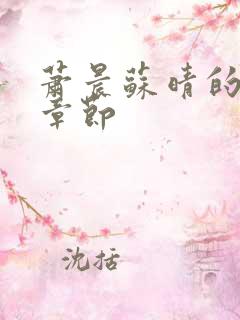 萧晨蘇晴的
章節
沈括